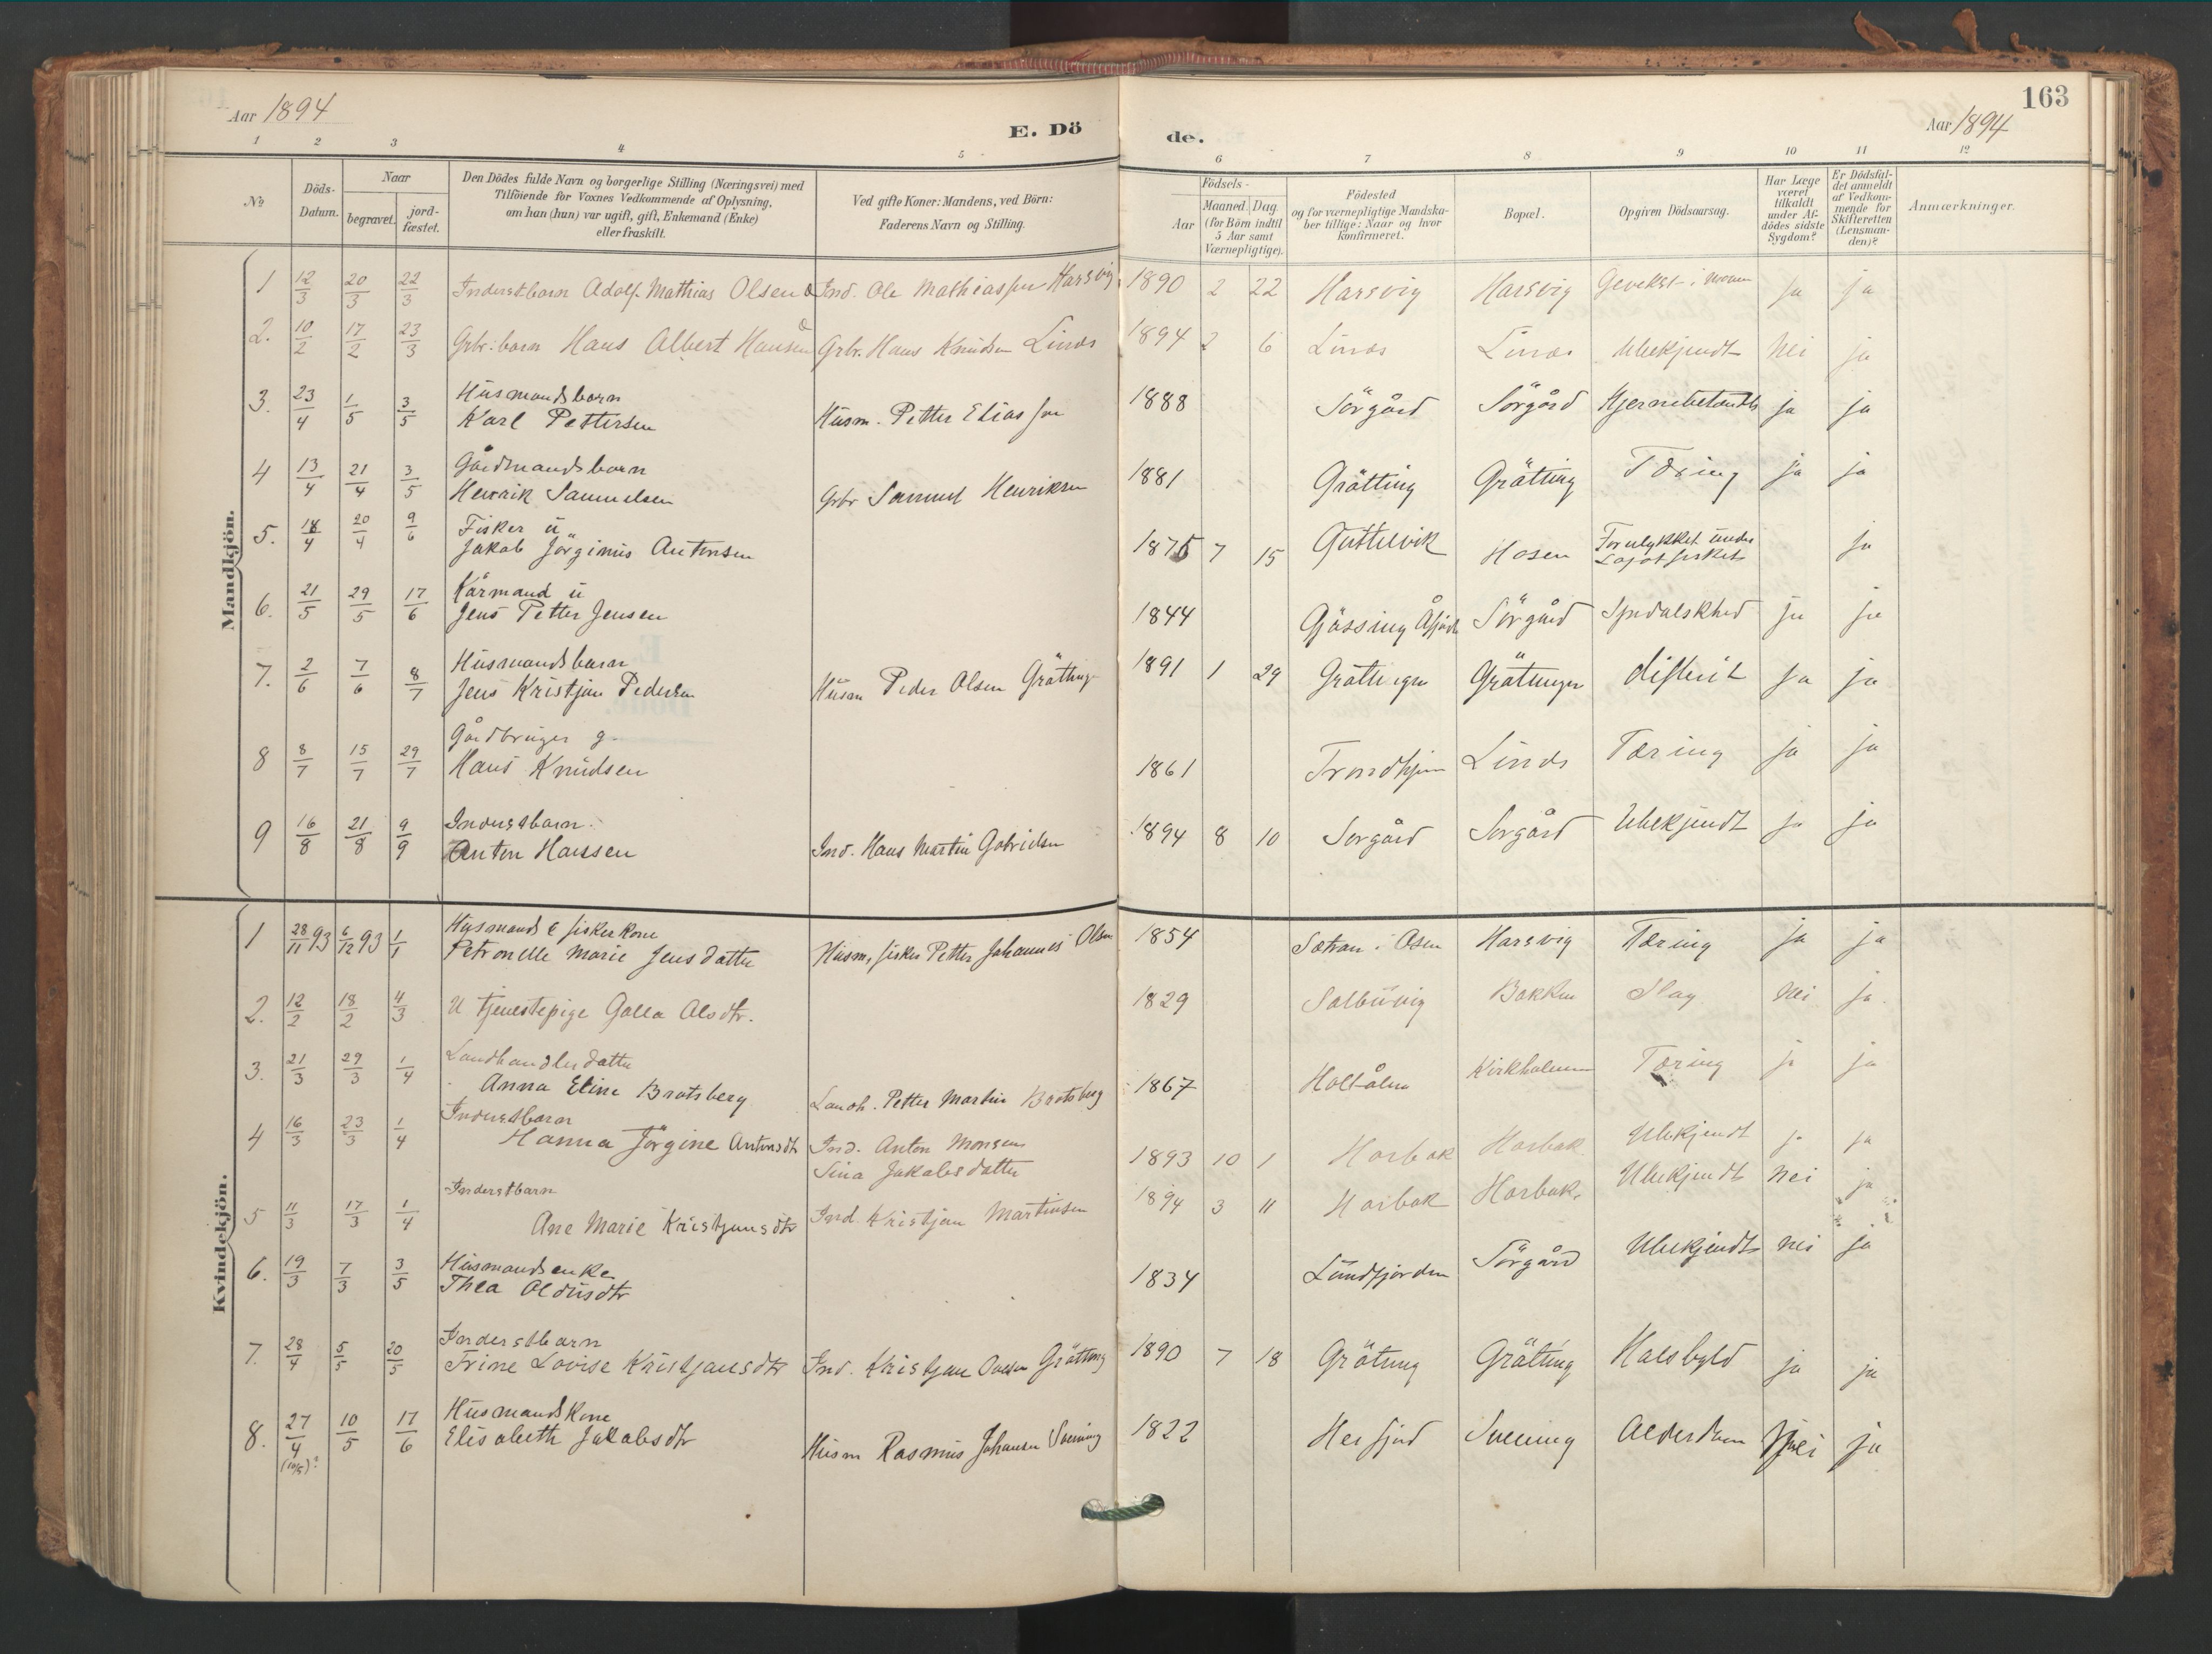 Aar 1894
E. Dö
de.
163
Aar 1894
1 2 3 4 5 6 7 8 9 10 11 12
No
Döds-Datum.
Naar
begravet.
jord-fæstet.
Den Dödes fulde Navn og borgerlige Stilling (Næringsvei) med
Tilföiende for Voxnes Vedkommende af Oplysning,
om han (hun) var ugift, gift, Enkemand (Enke)
eller fraskilt.
Ved gifte Koner: Mandens, ved Börn:
Faderens Navn og Stilling.
Födsels-
Aar
Maaned. Dag.
(for Börn indtil
5 Aar samt
Værnepligtige).
Födested
og for værnepligtige Mandska-
ber tillige: Naar og hvor
konfirmeret.
Bopæl.
Opgiven Dödsaarsag.
Har Læge
været
tilkaldt
under Af-
dödes sidste
Sygdom?
Er Dödsfal-
det anmeldt
af Vedkom-
mende for
Skifteretten
(Lensman-
den)?
Anmærkninger.
Mandkjön.
1 12/3 20/3 22/3 Inderstbarn Adolf Mathias Olsen Ind. Ole Mathiassen Harsvig 1890 2 22 Harsvig Harsvig ja ja
2. 10/2 17/2 23/3 Grbr. barn Hans Albert Hansen Grbr. Hans Knudsen Linds 1894 2 6 Linds Linds Ubekjendt Nei ja
3. 23/4 1/5 3/5 Husmandsbarn
Karl Pettersen Husm. Petter Eliassen 1888 Sörgård Sörgård ja ja
4 13/4 21/4 3/5 Gårdmandsbarn
Henrik Samuelsen Grbr Samuel Henriksen 1881 Gråtting Gråtting Tæring ja ja
5. 18/4 20/4 9/6 Fisker u
Jakob Jörginus Antonsen 1875 7 15 Guttelvik Hosen Forulykket under
Lofotfisket ja
6. 21/5 29/5 17/6 Kårmand u
Jens Petter Jensen 1844 Gjæssing Åfjord Sörgård Spedalskhed ja ja
7. 2/6 7/6 8/7 Husmandsbarn
Jens Kristjan Pedersen Husm Peder Olsen Gråtting 1891 1 29 Gråttingen Gråttingen difterit ja ja
8 8/7 15/7 29/7 Gårdbruger g
Hans Knudsen 1861 Trondhjem Linds Tæring ja ja
9 16/8 21/8 9/9 Inderstbarn
Anton Hanssen Ind. Hans Martin Gabrielsen 1894 8 10 Sorgård Sorgård Ubekjendt ja ja
Kvindekjön.
1 28/11 93 6/12 93 1/1 Husmands & fiskerkone
Petronelle Marie Jensdatter Husm, fisker Petter Johannes Olsen 1854 Sætran i Osen Harsvig Tæring ja ja
2. 12/2 18/2 4/3 U tjenestepige Golla Olsdtr. 1829 Bakken Slag nei ja
3. 21/3 29/3 1/4 Landhandlerdatter
Anna Eline Bratsberg Landh. Petter Martin Bratsberg 1867 Holtålen Kirkholmen Tæring ja ja
4 16/3 23/3 1/4 Inderstbarn
Hanna Jörgine Antonsdtr Ind. Anton Monsen
Sina Jakobsdatter 1893 10 1 Horbak Horbak Ubekjendt ja ja
5 11/3 17/3 1/4 Inderstbarn
Ane Marie Kristjansdtr Ind. Kristjan Martinsen 1894 3 11 Horbak Horbak Ubekjendt nei ja
6. 19/3 7/3 3/5 Husmandsenke
Thea Oldusdtr 1834 Lundfjorden Sörgård Ubekjendt nei ja
7. 28/4 5/5 20/5 Inderstbarn
Trine Lovise Kristjansdtr Ind. Kristjan Gråtting 1890 7 18 Gråtting Gråtting Halsbyld ja ja
8. 27/4 10/5 17/6 Husmandskone
Elisabeth Jakobsdtr Husm Rasmus Johansen Svening 1822 Herfjord Svening Alderdom Nei ja
(10/5)?